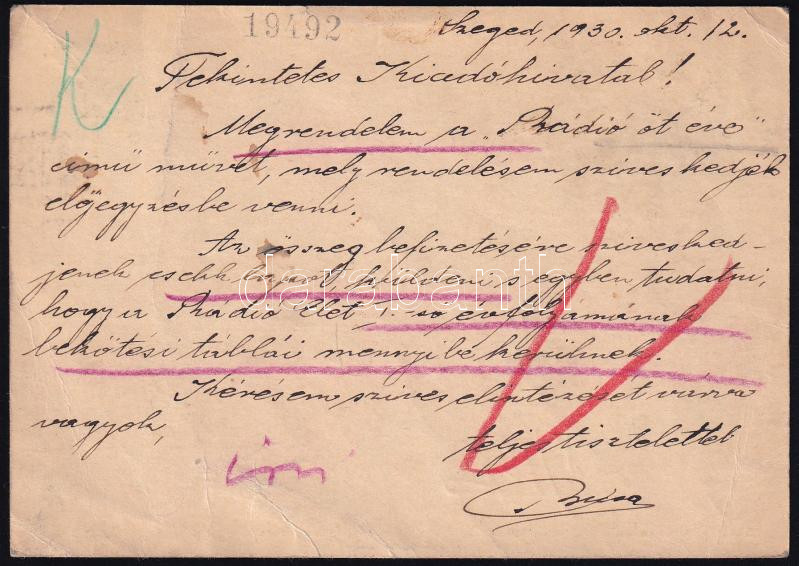 19492
Szeged, 1930. okt. 12.
K
Tekintetes Kiadóhivatal!
Megrendelem a „Rádió öt éve"
című művet, mely rendelésem sziveskedjék
előjegyzésbe venni.
Az összeg befizetésére szivesked-
jenek csekklapot küldeni s egyben tudatni,
hogy a Rádió Élet I-ső évfolyamának
bekötési táblái mennyibe kerülnek.
Kérésem szíves elintézését várva
vagyok,
teljes tisztelettel
írni
darabanth